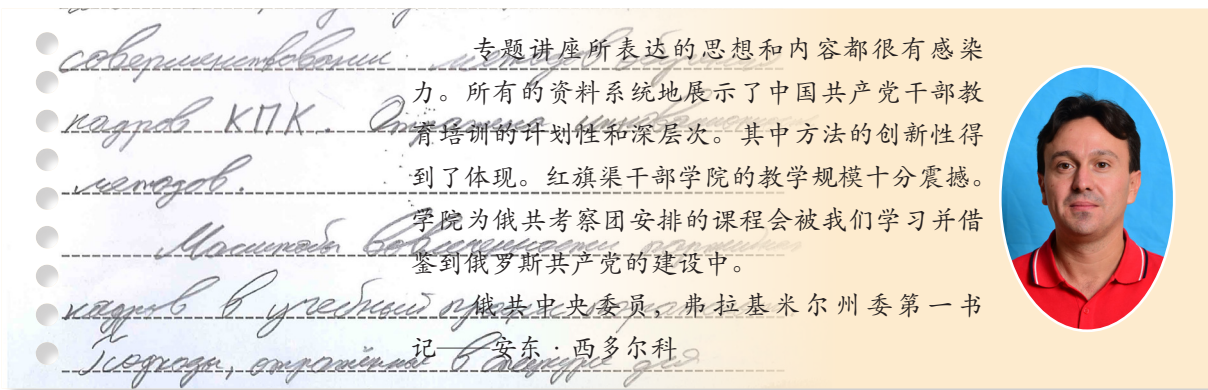 совершенствовании методов
кадров КПК.
методов.
Масштабы вовлеченности
кадров в учебный
Подходы, в для
专题讲座所表达的思想和内容都很有感染
力。所有的资料系统地展示了中国共产党干部教
育培训的计划性和深层次。其中方法的创新性得
到了体现。红旗渠干部学院的教学规模十分震撼。
学院为俄共考察团安排的课程会被我们学习并借
鉴到俄罗斯共产党的建设中。
俄共中央委员，弗拉基米尔州委第一书
记——安东·西多尔科